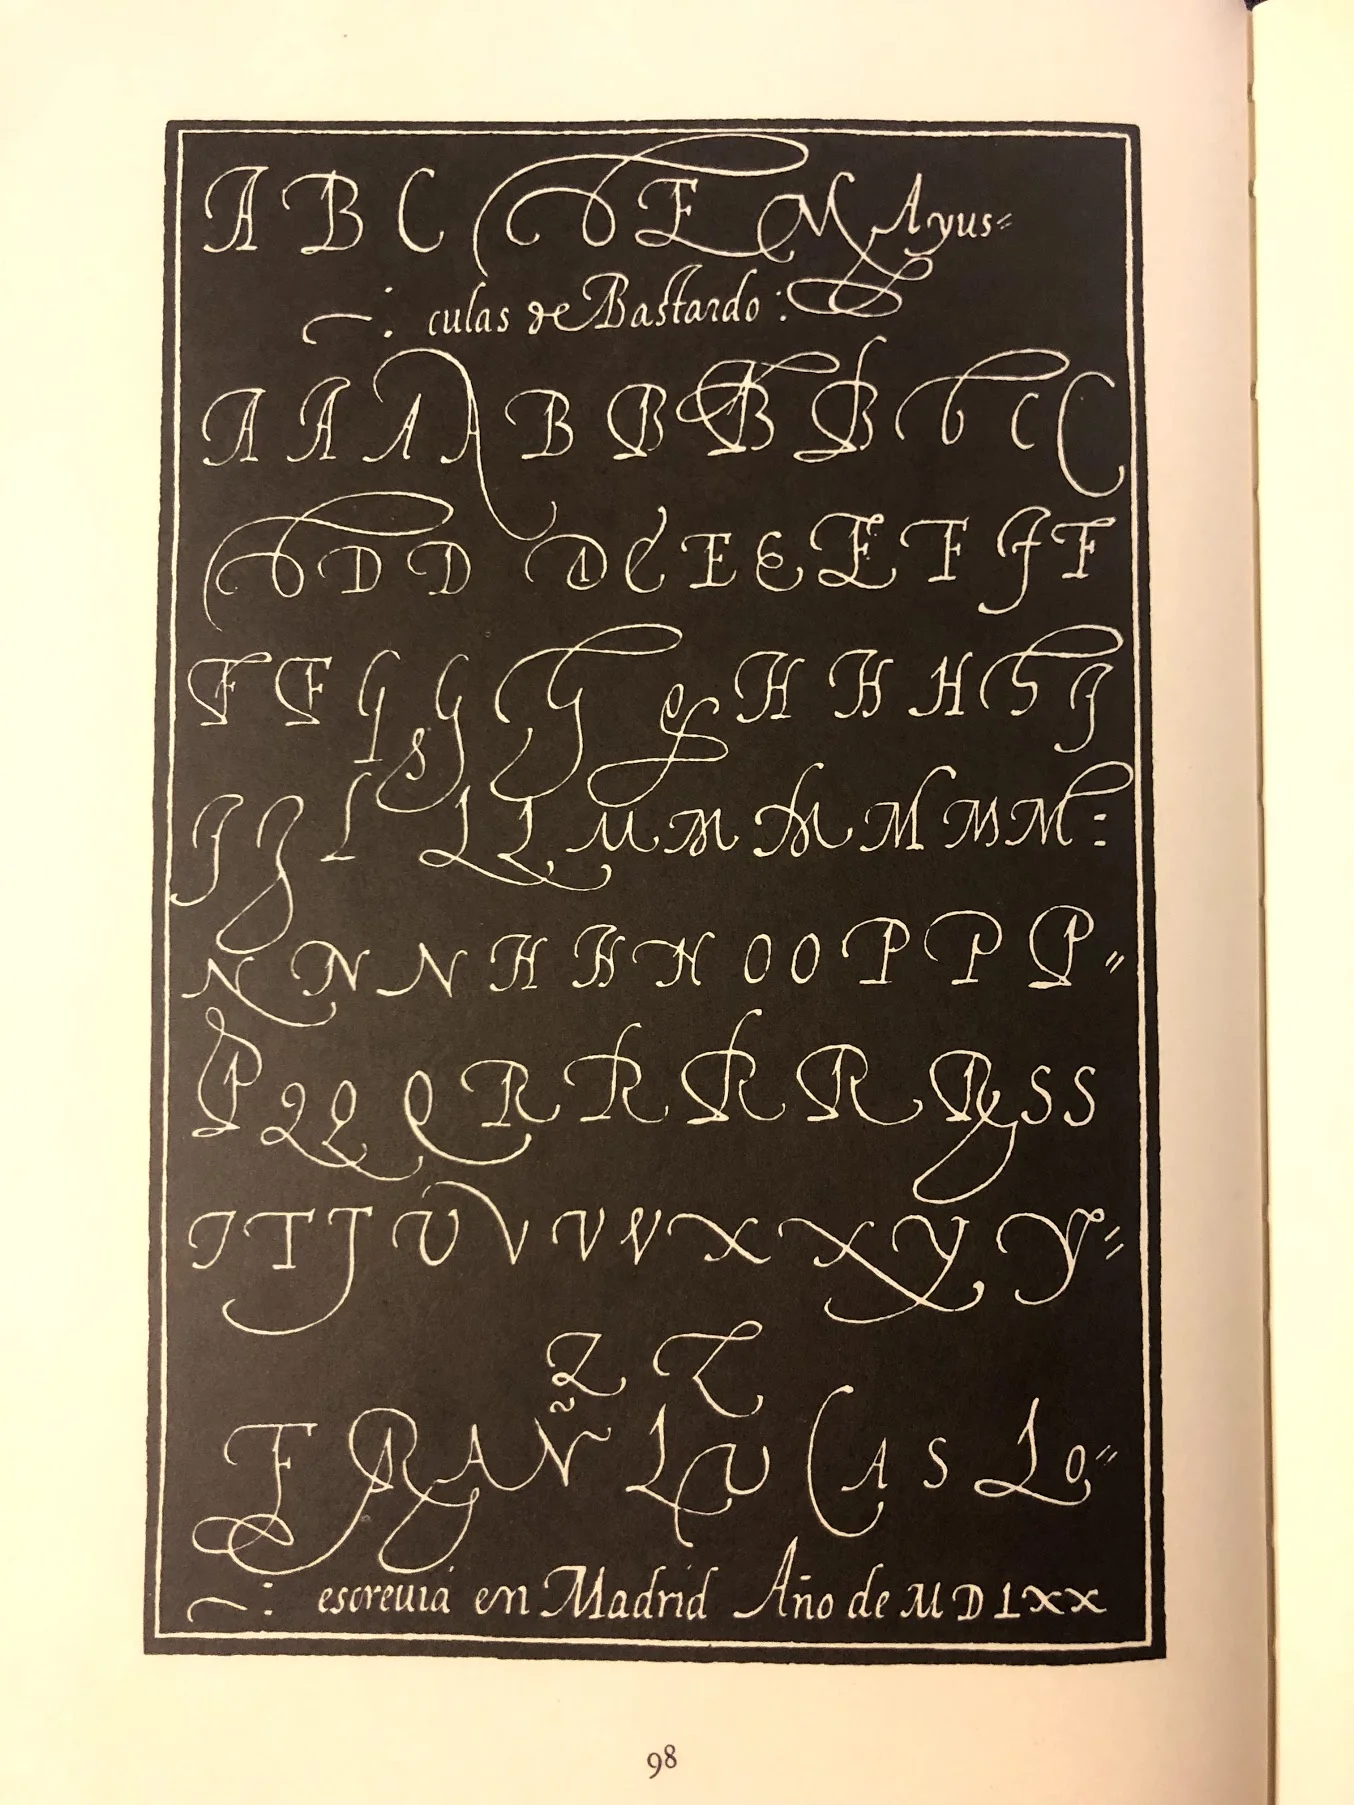 A B C D E M Ayus=
culas de Bastardo :
A A A A B B B B B C C
D D D D E E E E F F F
F F G G G H H H H I
I I L L L M M M M M M :
N N N H H H O O P P P =
P Q Q Q R R R R R S S
T T T V V V V X X Y Y =
Z Z
FRAÑ LUCAS Lo=
escreuia en Madrid Año de MDLXX
98